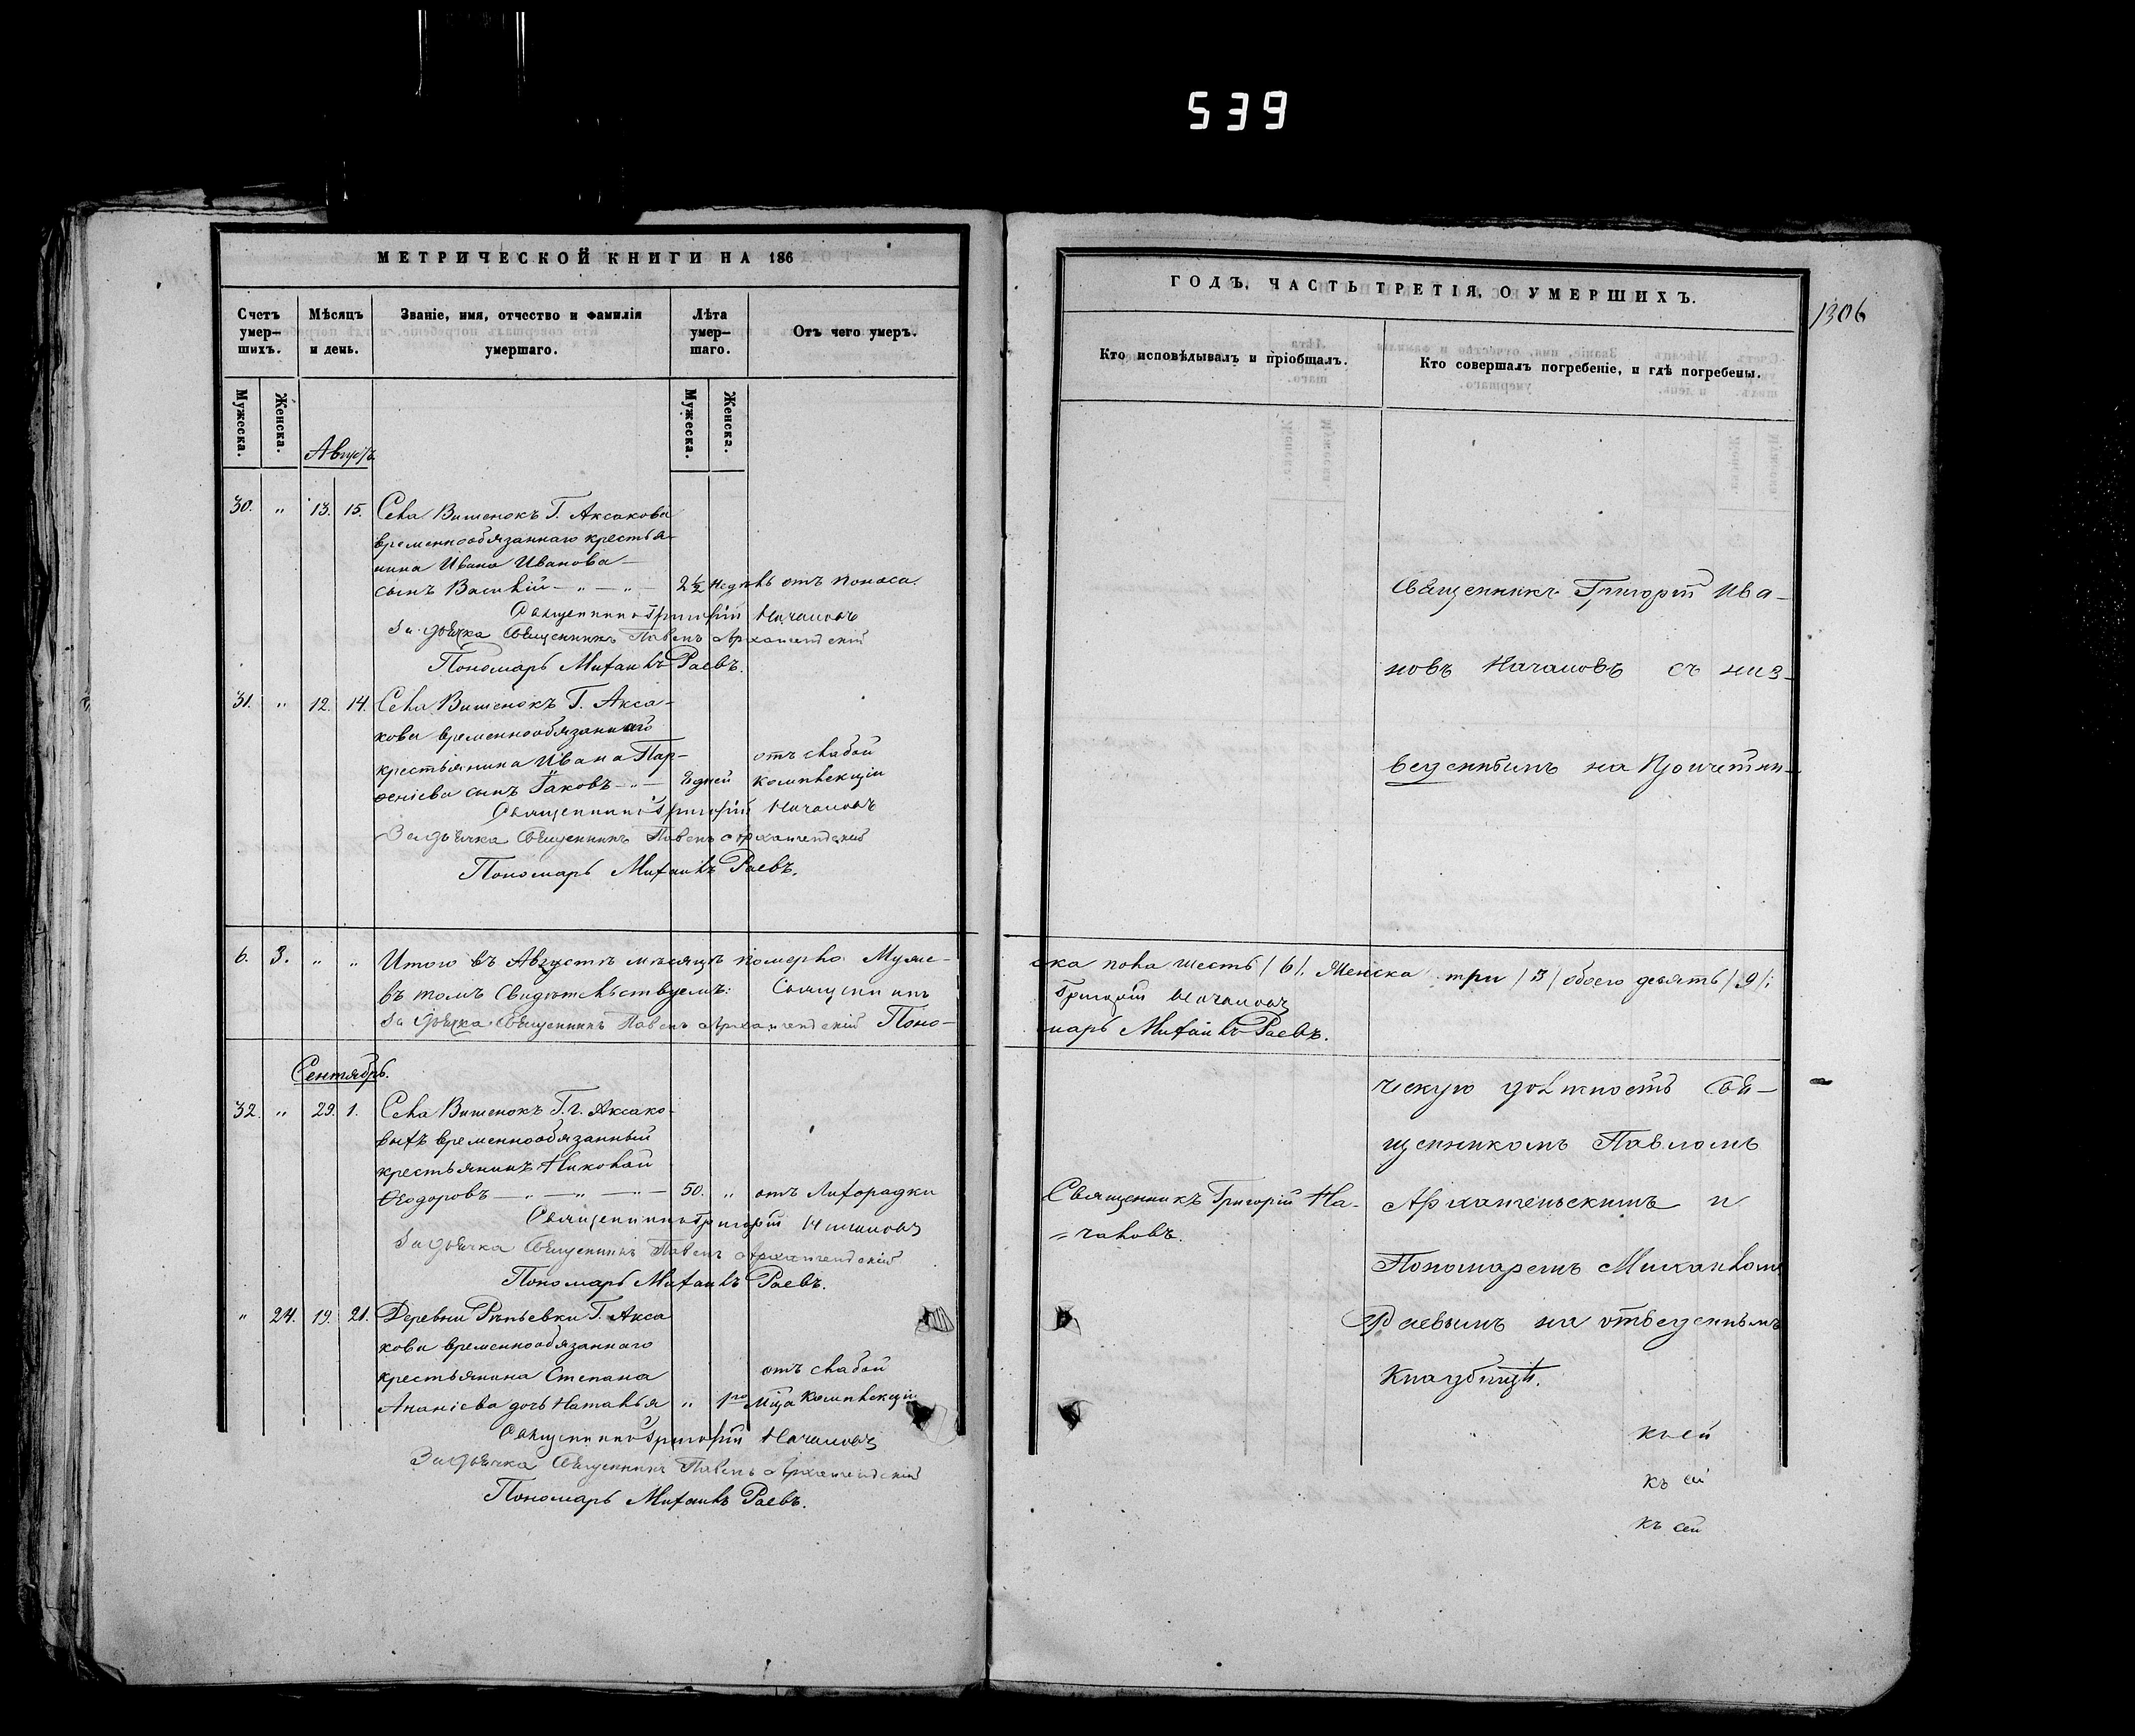 539
МЕТРИЧЕСКОЙ КНИГИ НА 186
Счетъ умер-шихъ.
Мѣсяцъ и день.
Званіе, имя, отчество и фамилія умершаго.
Лѣта умер-шаго.
Отъ чего умеръ.
Мужеска.
Женска.
Мужеска.
Женска.
Августъ
30. „ 13. 15. Села Вишенокъ Г. Аксакова
временнообязаннаго крестья-
нина Ивана Иванова
сынъ Василій — „ — „ — 2½ недѣль отъ поноса.
Священникъ Григорій Началовъ
За дьячка Священникъ Павелъ Архангельскій
Пономарь Михаилъ Раевъ.
31. „ 12. 14. Села Вишенокъ Г. Акса-
кова временнообязаннаго
крестьянина Ивана Пар- отъ слабой
ѳеніева сынъ Іаковъ — „ — 8 дней комплекціи
Священникъ Григорій Началовъ
За дьячка Священникъ Павелъ Архангельскій
Пономарь Михаилъ Раевъ.
6. 3. „ „ Итого въ Августѣ мѣсяцѣ померло Муже-
въ томъ свидѣтельствуемъ: Священникъ
За дьячка Священникъ Павелъ Архангельскій Поно-
Сентябрь.
32. „ 29. 1. Села Вишенокъ Г. г. Аксако-
выхъ временнообязанный
крестьянинъ Николай
Ѳеодоровъ — „ — „ — „ — 50. „ отъ лихорадки
Священникъ Григорій Началовъ
За дьячка Священникъ Павелъ Архангельскій
Пономарь Михаилъ Раевъ.
„ 24. 19. 21. Деревни Рѣпьевки Г. Акса
кова временнообязаннаго
крестьянина Степана отъ слабой
Ананіева дочь Наталья „ 1го мца комплекціи
Священникъ Григорій Началовъ
За дьячка Священникъ Павелъ Архангельскій
Пономарь Михаилъ Раевъ.
ГОДЪ, ЧАСТЬ ТРЕТІЯ, О УМЕРШИХЪ.
1306
Кто исповѣдывалъ и пріобщалъ.
Кто совершалъ погребеніе, и гдѣ погребены.
Священникъ Григорій Ива-
новъ Началовъ съ низ-
веденнымъ на Причетни-
ска пола шесть /6/. Женска три /3/ обоего девять /9/:
Григорій Началовъ
марь Михаилъ Раевъ.
ческую должность Свя-
щенникомъ Павломъ
Священникъ Григорій На-
чаловъ.
Архангельскимъ и
Пономаремъ Михаиломъ
Раевымъ на отведенномъ
Кладбищѣ.
къ сей
къ сей
къ сей